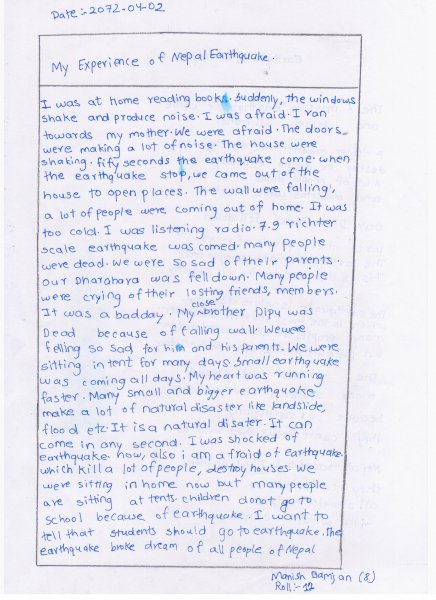 Date :- 2072-04-02
My Experience of Nepal Earthquake.
I was at home reading book. Suddenly, the windows
shake and produce noise. I was afraid. I ran
towards my mother. We were afraid. The doors
were making a lot of noise. The house were
shaking. fify seconds the earthquake come. when
the earthquake stop, we came out of the
house to open places. The wall were falling,
a lot of people were coming out of home. It was
too cold. I was listening radio. 7.9 richter
scale earthquake was comed. many people
were dead. We were so sad of their parents.
our Dharahara was fell down. Many people
were crying of their losting friends, members.
It was a badday. My close brother Dipu was
Dead because of falling wall. We were
felling so sad for him and his parents. We were
sitting in tent for many days. Small earthquake
was coming all days. My heart was running
faster. Many small and bigger earthquake
make a lot of natural disaster like landslide,
flood etc. It is a natural disater. It can
come in any second. I was shocked of
earthquake. now, also i am afraid of earthquake.
which kill a lot of people, destroy houses. We
were sitting in home now but many people
are sitting at tents. children donot go to
school because of earthquake. I want to
tell that students should go to earthquake. The
earthquake broke dream of all people of Nepal
Manish Bamjan (8)
Roll :- 12